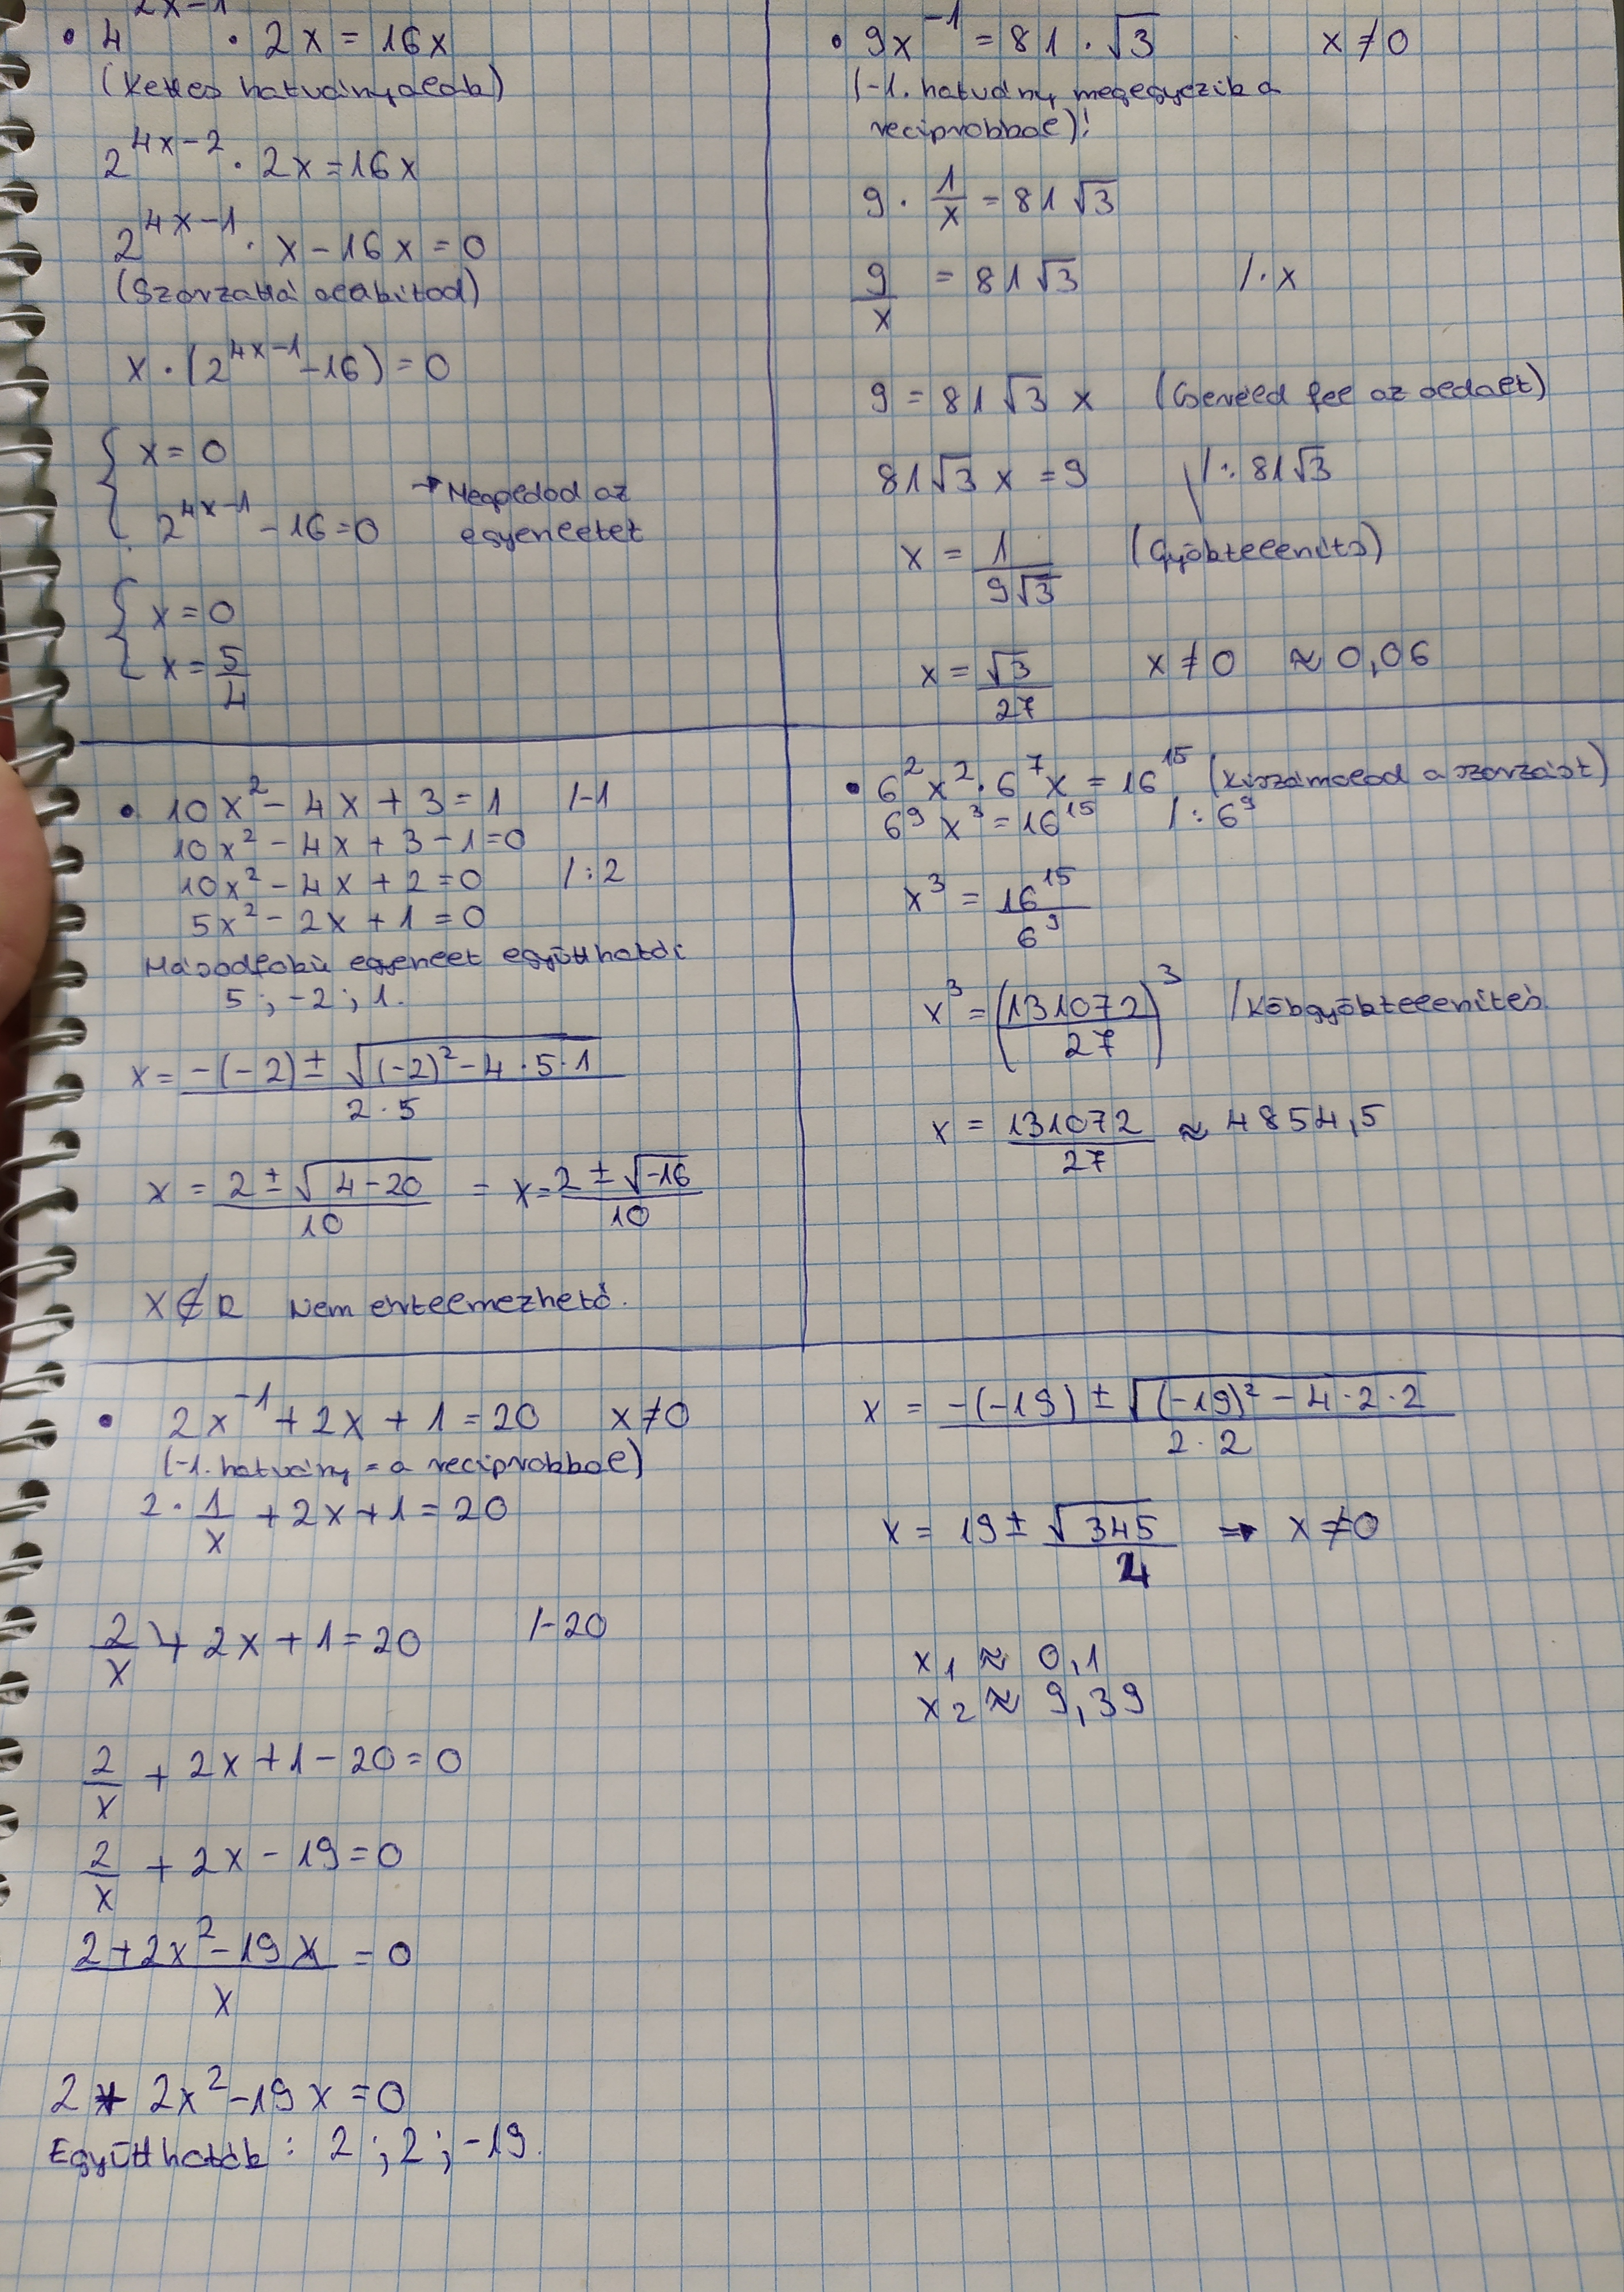 • 4^(2x-1) · 2x = 16x
(Kettes hatványalak)
2^(4x-2) · 2x = 16x
2^(4x-1) · x - 16x = 0
(Szorzattá alakítod)
x · (2^(4x-1) - 16) = 0
{ x = 0
2^(4x-1) - 16 = 0 → Megoldod az
egyenletet
{ x = 0
x = 5/4
• 9x^(-1) = 81 · √3 x ≠ 0
(-1. hatvány megegyezik a
reciprokkal)!
9 · 1/x = 81√3
9/x = 81√3 /· x
9 = 81√3 x (Cseréld fel az oldalt)
81√3 x = 9 /: 81√3
x = 1/(9√3) (Gyöktelenítő)
x = √3/27 x ≠ 0 ≈ 0,06
• 10x² - 4x + 3 = 1 /-1
10x² - 4x + 3 - 1 = 0
10x² - 4x + 2 = 0 /: 2
5x² - 2x + 1 = 0
Másodfokú egyenlet együtthatói
5 ; -2 ; 1.
x = (-(-2) ± √((-2)² - 4 · 5 · 1))/(2 · 5)
x = (2 ± √(4-20))/10 = x = (2 ± √(-16))/10
x ∉ R Nem értelmezhető.
• 6² x² · 6⁷ x = 16¹⁵ (Kiszámolod a szorzást)
6⁹ x³ = 16¹⁵ /: 6⁹
x³ = 16¹⁵/6⁹
x³ = (131072/27)³ /Köbgyöktelenítés
x = 131072/27 ≈ 4854,5
• 2x^(-1) + 2x + 1 = 20 x ≠ 0
(-1. hatvány = a reciprokkal)
2 · 1/x + 2x + 1 = 20
2/x + 2x + 1 = 20 /-20
2/x + 2x + 1 - 20 = 0
2/x + 2x - 19 = 0
(2 + 2x² - 19x)/x = 0
2 + 2x² - 19x = 0
Együtthatók : 2 ; 2 ; -19.
x = (-(-19) ± √((-19)² - 4 · 2 · 2))/(2 · 2)
x = 19 ± √345/4 → x ≠ 0
x₁ ≈ 0,1
x₂ ≈ 9,39